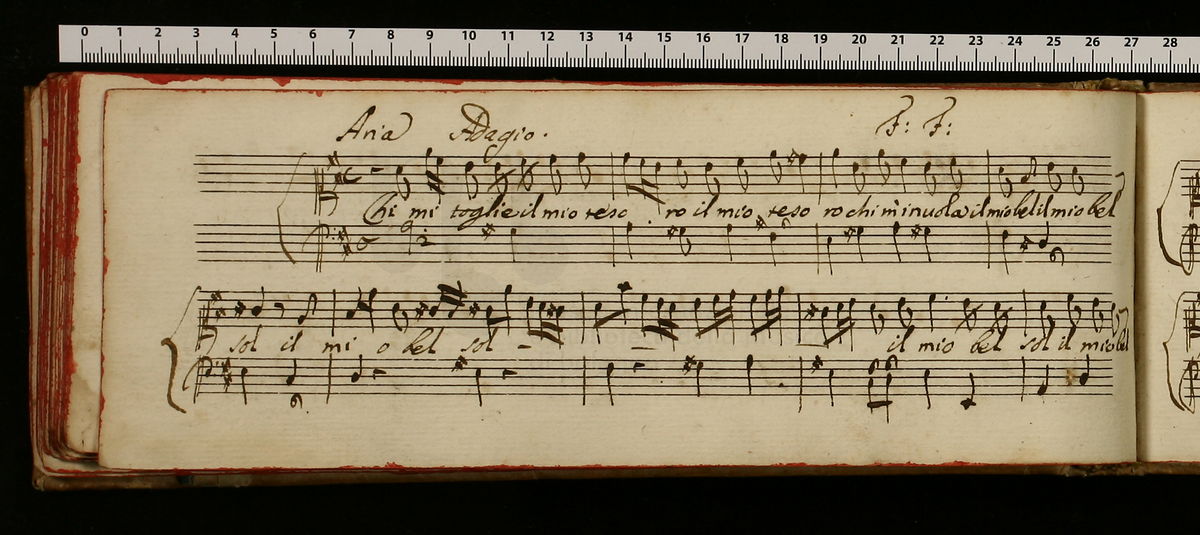 0 1 2 3 4 5 6 7 8 9 10 11 12 13 14 15 16 17 18 19 20 21 22 23 24 25 26 27 28
Aria Adagio. F: F:
Chi mi toglie il mio teso ro il mio teso ro chi m'invola il mio bel il mio bel
sol il mi o bel sol - - il mio bel sol il mio bel